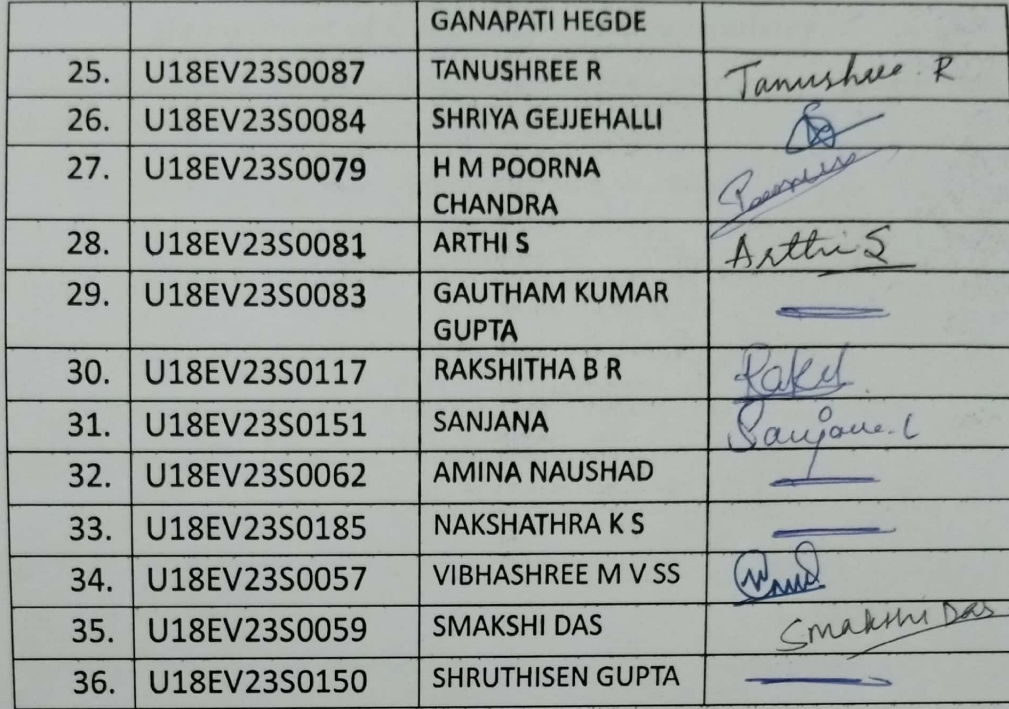 GANAPATI HEGDE
25. U18EV23S0087 TANUSHREE R Tanushree R
26. U18EV23S0084 SHRIYA GEJJEHALLI
27. U18EV23S0079 H M POORNA
CHANDRA
28. U18EV23S0081 ARTHI S Arthi S
29. U18EV23S0083 GAUTHAM KUMAR
GUPTA
30. U18EV23S0117 RAKSHITHA B R
31. U18EV23S0151 SANJANA Sanjana. L
32. U18EV23S0062 AMINA NAUSHAD
33. U18EV23S0185 NAKSHATHRA K S
34. U18EV23S0057 VIBHASHREE M V SS
35. U18EV23S0059 SMAKSHI DAS Smakshi Das
36. U18EV23S0150 SHRUTHISEN GUPTA